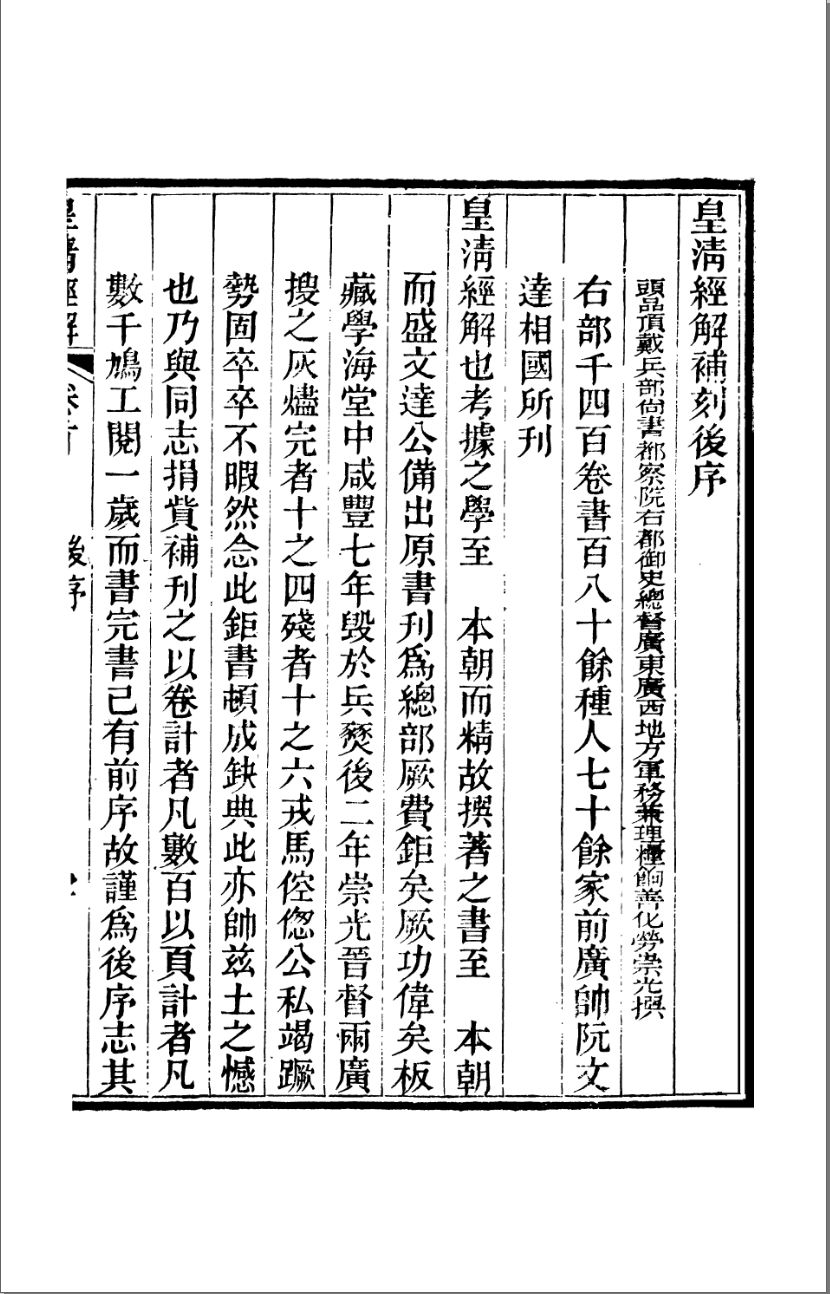 皇清經解補刻後序
頭品頂戴兵部尚書都察院右都御史總督廣東廣西地方軍務兼理糧餉善化勞崇光撰
右部千四百卷書百八十餘種人七十餘家前廣帥阮文
達相國所刊
皇清經解也考據之學至　本朝而精故撰著之書至　本朝
而盛文達公備出原書刊為總部厥費鉅矣厥功偉矣板
藏學海堂中咸豐七年毁於兵燹後二年崇光晉督兩廣
搜之灰燼完者十之四殘者十之六戎馬倥偬公私竭蹶
勢固卒卒不暇然念此鉅書頓成缺典此亦帥兹土之憾
也乃與同志捐貲補刊之以卷計者凡數百以頁計者凡
數千鳩工閱一歲而書完書已有前序故謹為後序志其
皇清經解　卷首　後序